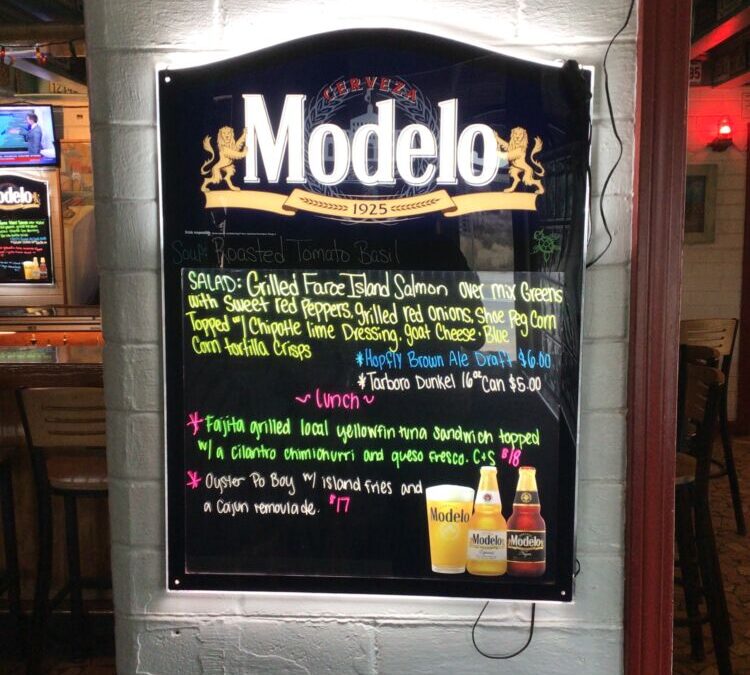 CERVEZA
Modelo
1925
Soup: Roasted Tomato Basil
SALAD: Grilled Faroe Island Salmon over mix Greens
with Sweet red Peppers, grilled red onions, Shoe Peg Corn
Topped w/ Chipotle lime Dressing, goat Cheese, Blue
Corn tortilla Crisps
*Hopfly Brown Ale Draft $6.00
*Tarboro Dunkel 16oz Can $5.00
~ lunch ~
* Fajita grilled local yellowfin tuna sandwich topped
w/ a cilantro chimichurri and queso fresco. C+S $18
* Oyster Po Boy w/ island fries and
a Cajun remoulade. $17
Modelo
Modelo
Modelo